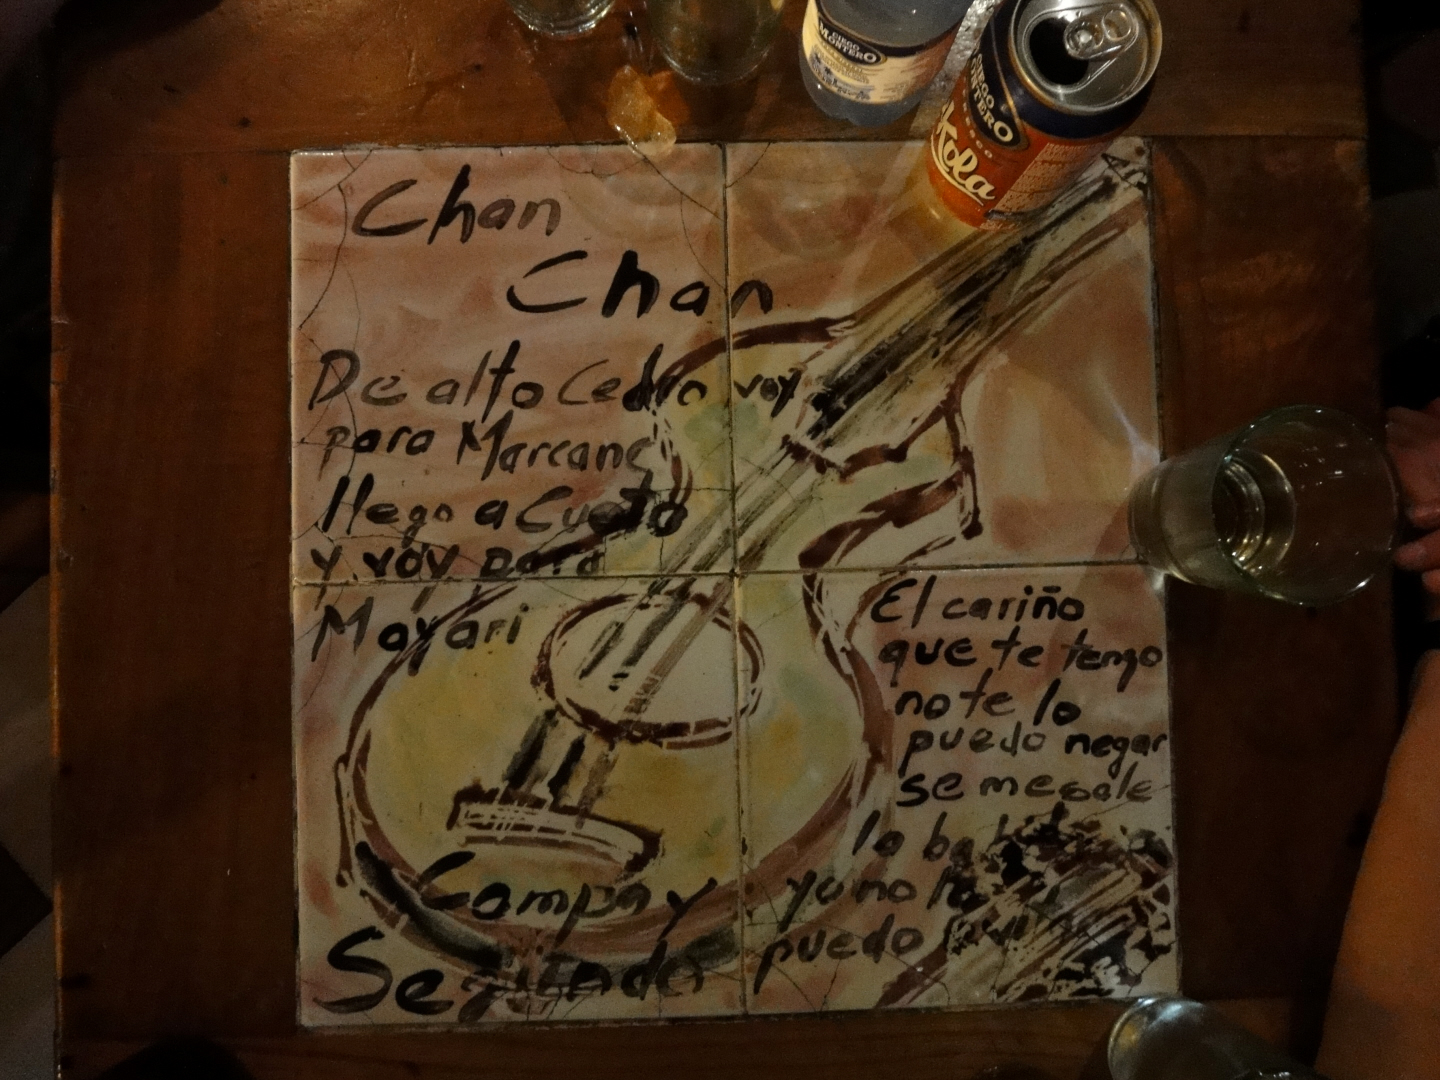 CIEGO
MONTERO
CIEGO
MONTERO
Kola
Chan
Chan
De alto Cedro voy
para Marcane
llego a Cueto
y voy para
Mayari
El cariño
que te tengo
no te lo
puedo negar
se me sale
la
yo no lo
puedo
Compay
Segundo